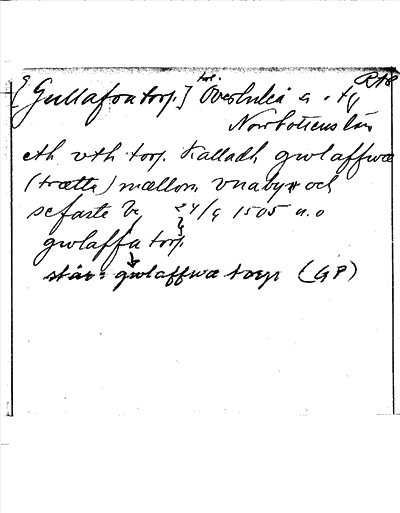 RA8
tor.
[Gullafvatorp.] Överluleå s. o. tg
Norrbottens län
eth vth torp kalladh gwlaffwa
(trætta) mællom vnaby och
sefaste by 24/9 1505 n.o
gwlaffa torp
står: gwlaffwa torp (GP)